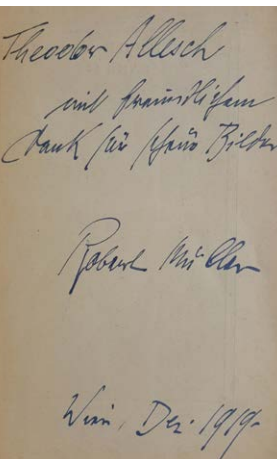 Theodor Allesch
mit freundlichem
Dank für schöne Bilder
Robert Müller
Wien, Dez. 1919.